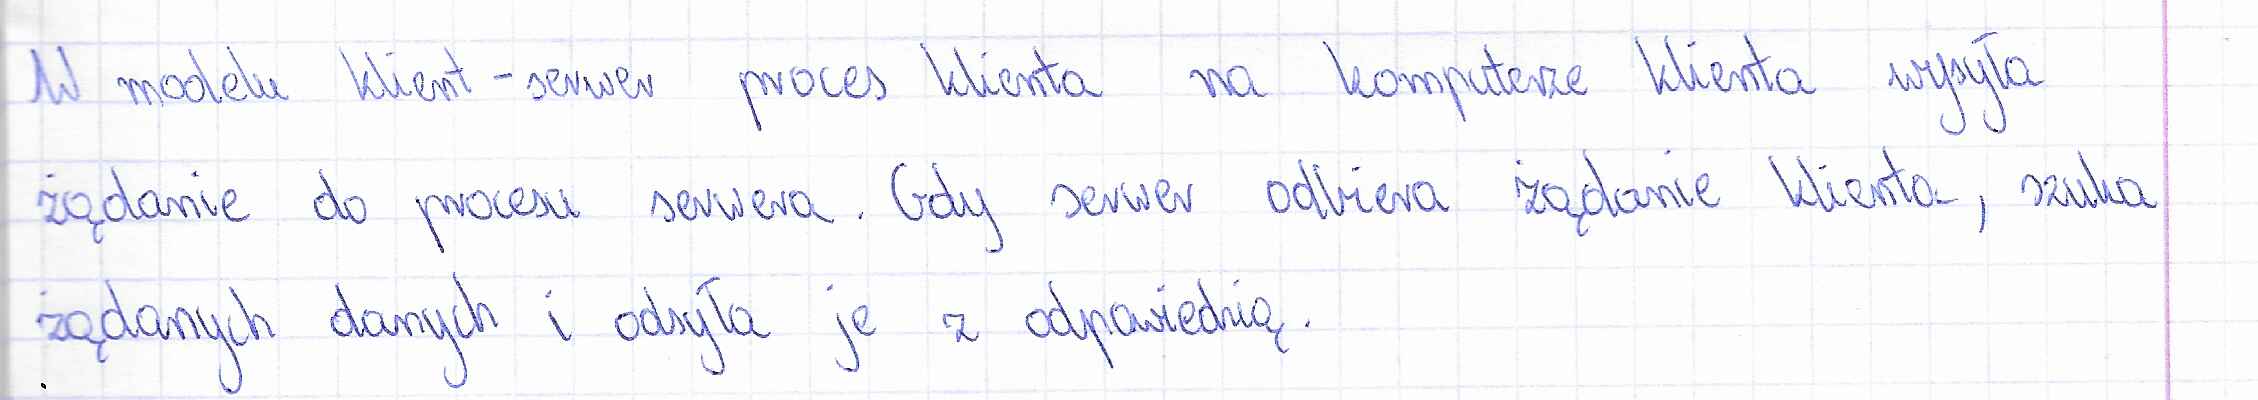 W modelu klient-serwer proces klienta na komputerze klienta wysyła
żądanie do procesu serwera. Gdy serwer odbiera żądanie klienta, szuka
żądanych danych i odsyła je z odpowiednią.